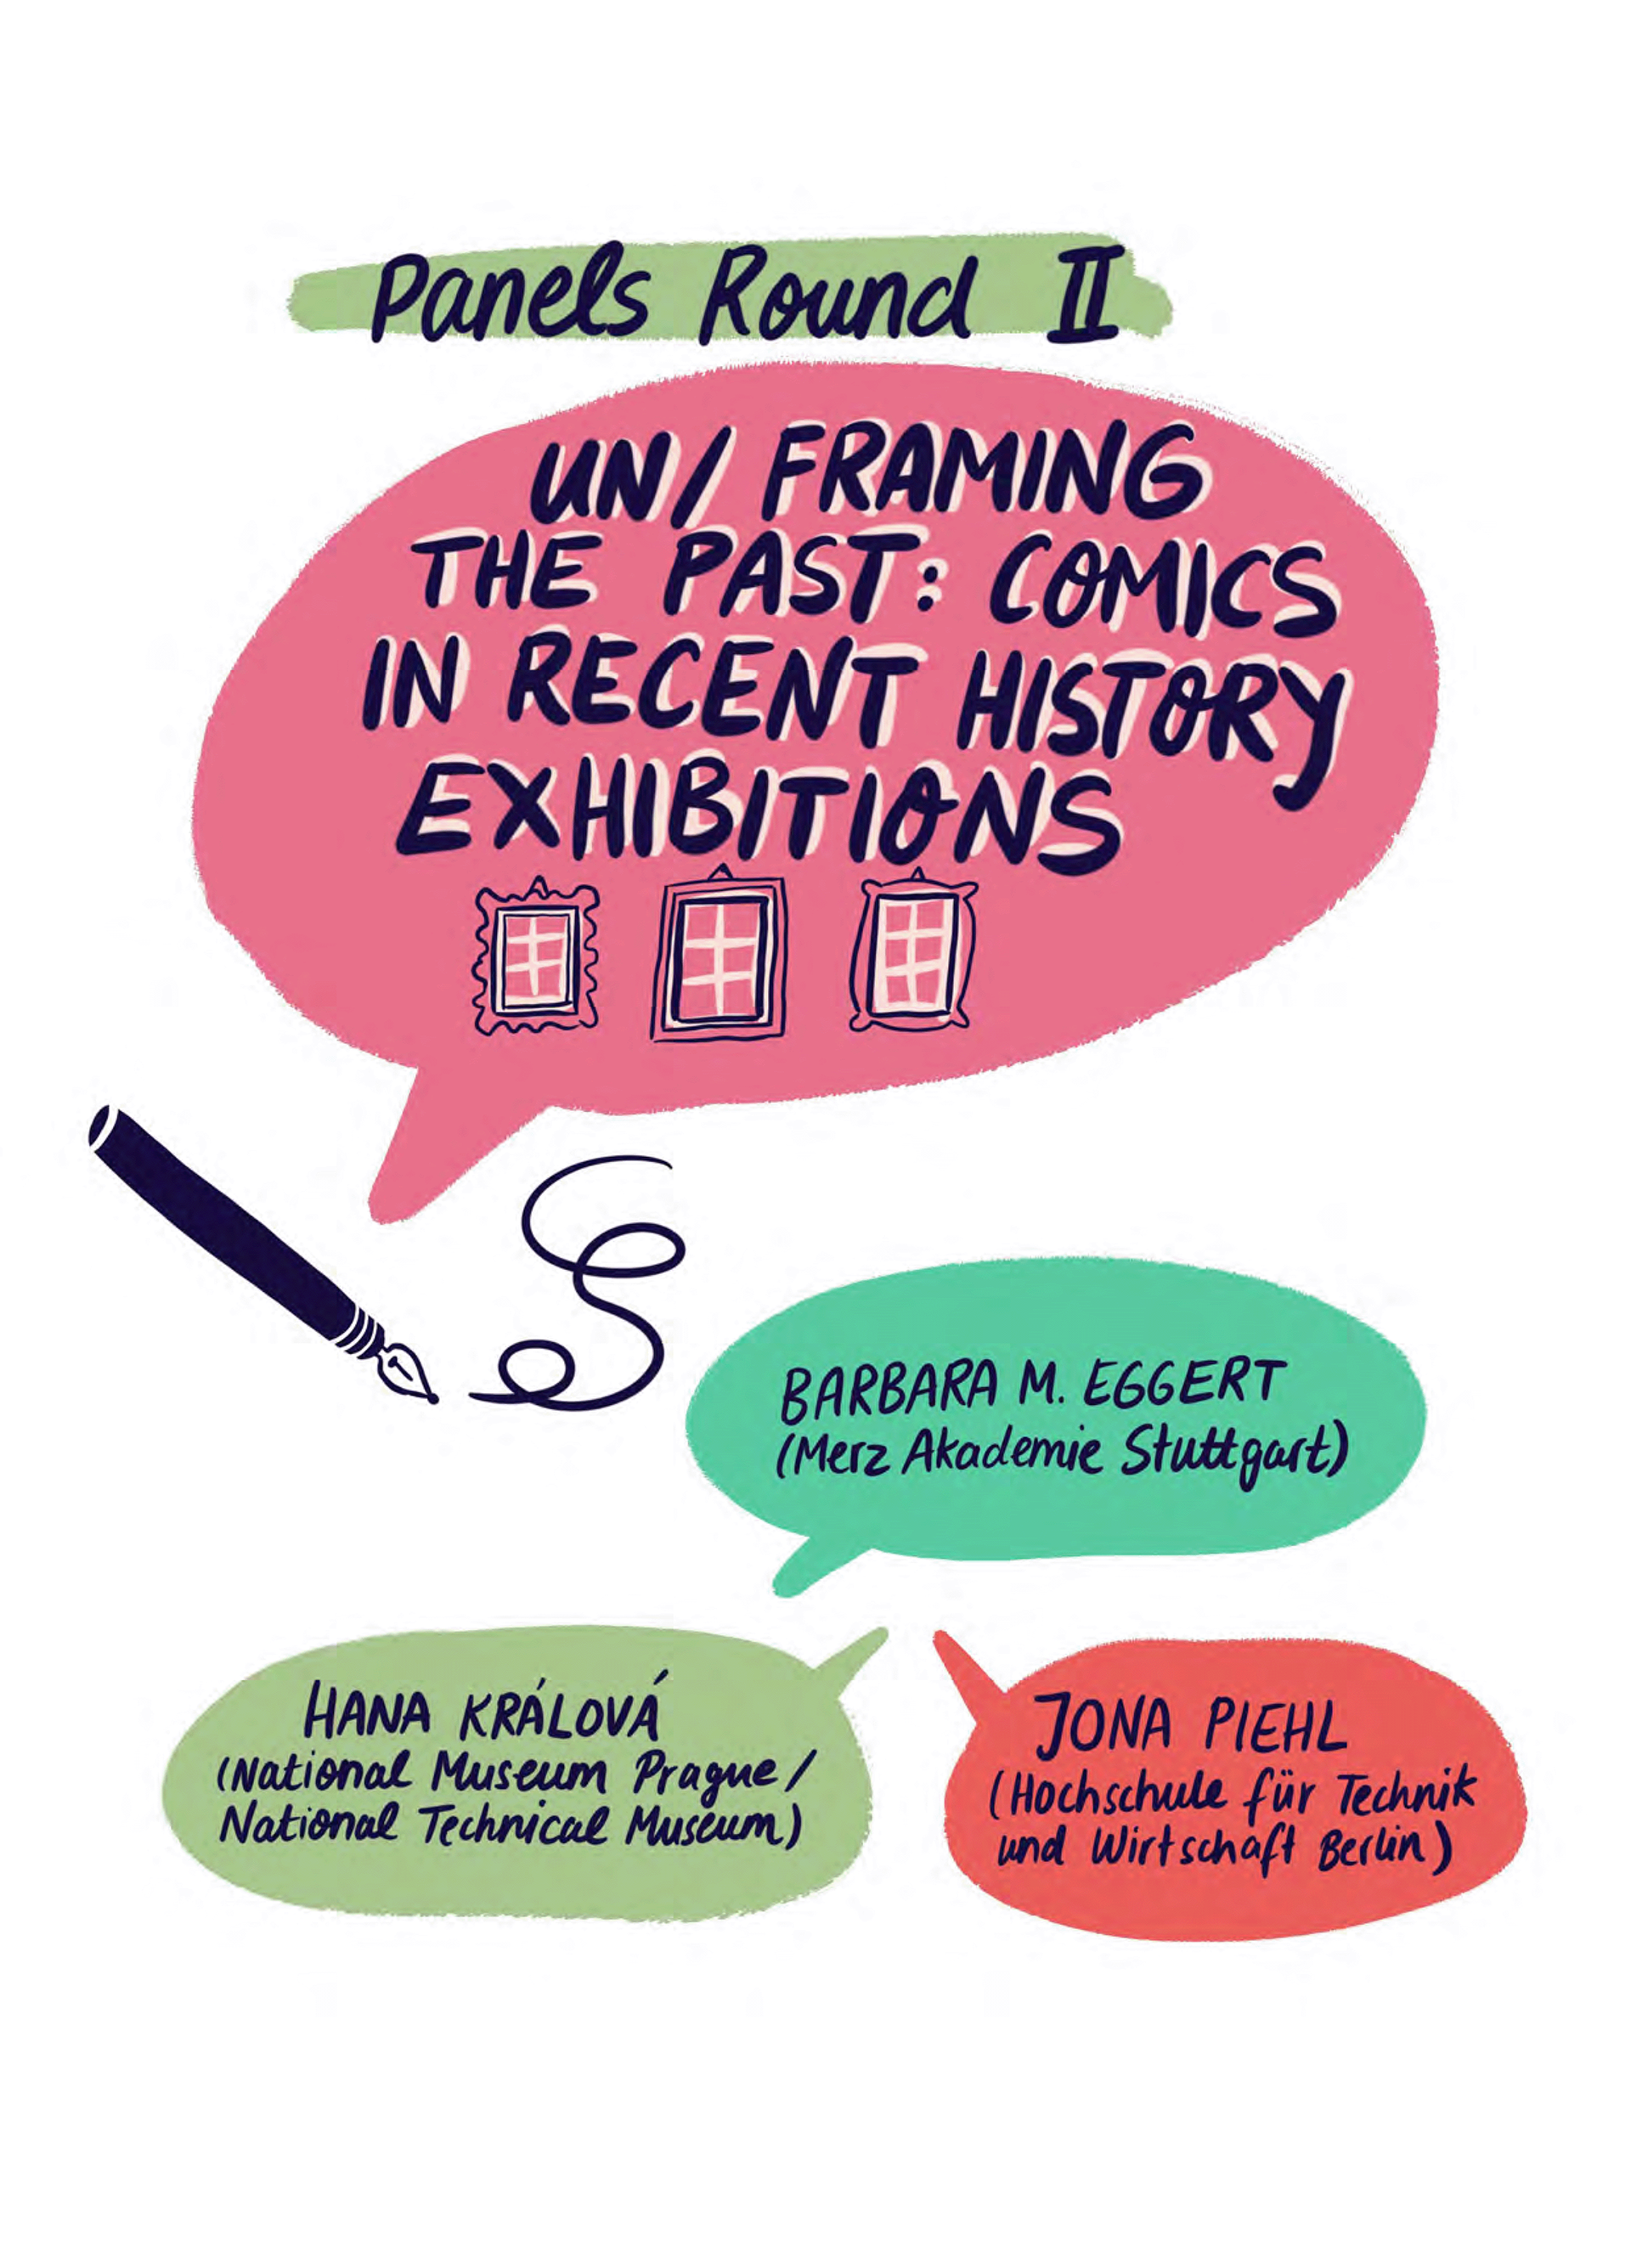 Panels Round II
UN/ FRAMING
THE PAST: COMICS
IN RECENT HISTORY
EXHIBITIONS
BARBARA M. EGGERT
(Merz Akademie Stuttgart)
HANA KRÁLOVÁ
(National Museum Prague/
National Technical Museum)
JONA PIEHL
(Hochschule für Technik
und Wirtschaft Berlin)